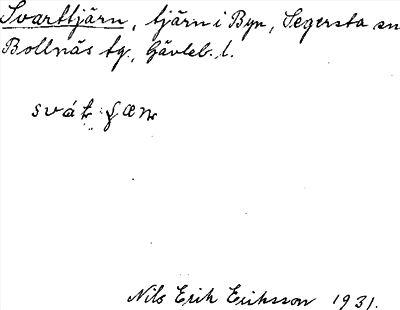 Svarttjärn, tjärn i Byn, Segersta sn
Bollnäs tg., Gävleb. l.
svát
Nils Erik Eriksson 1931.